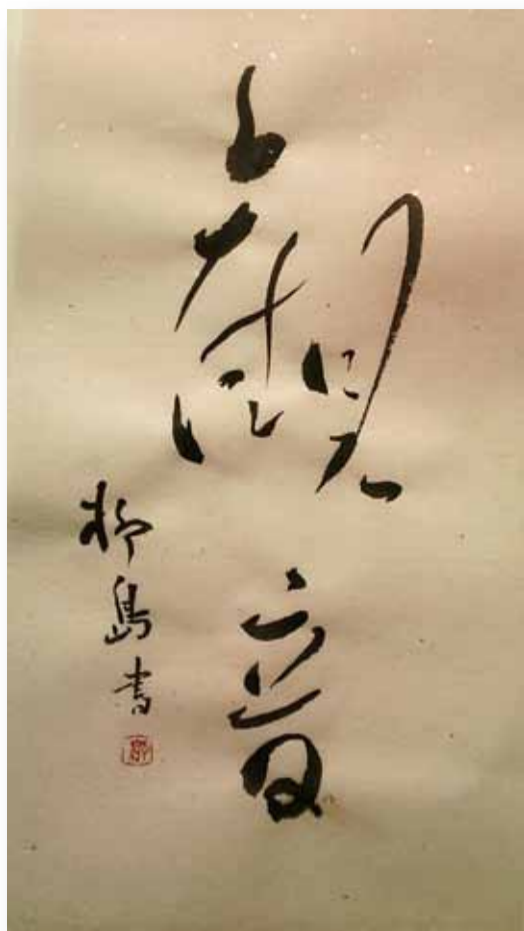 觀音
柳島書